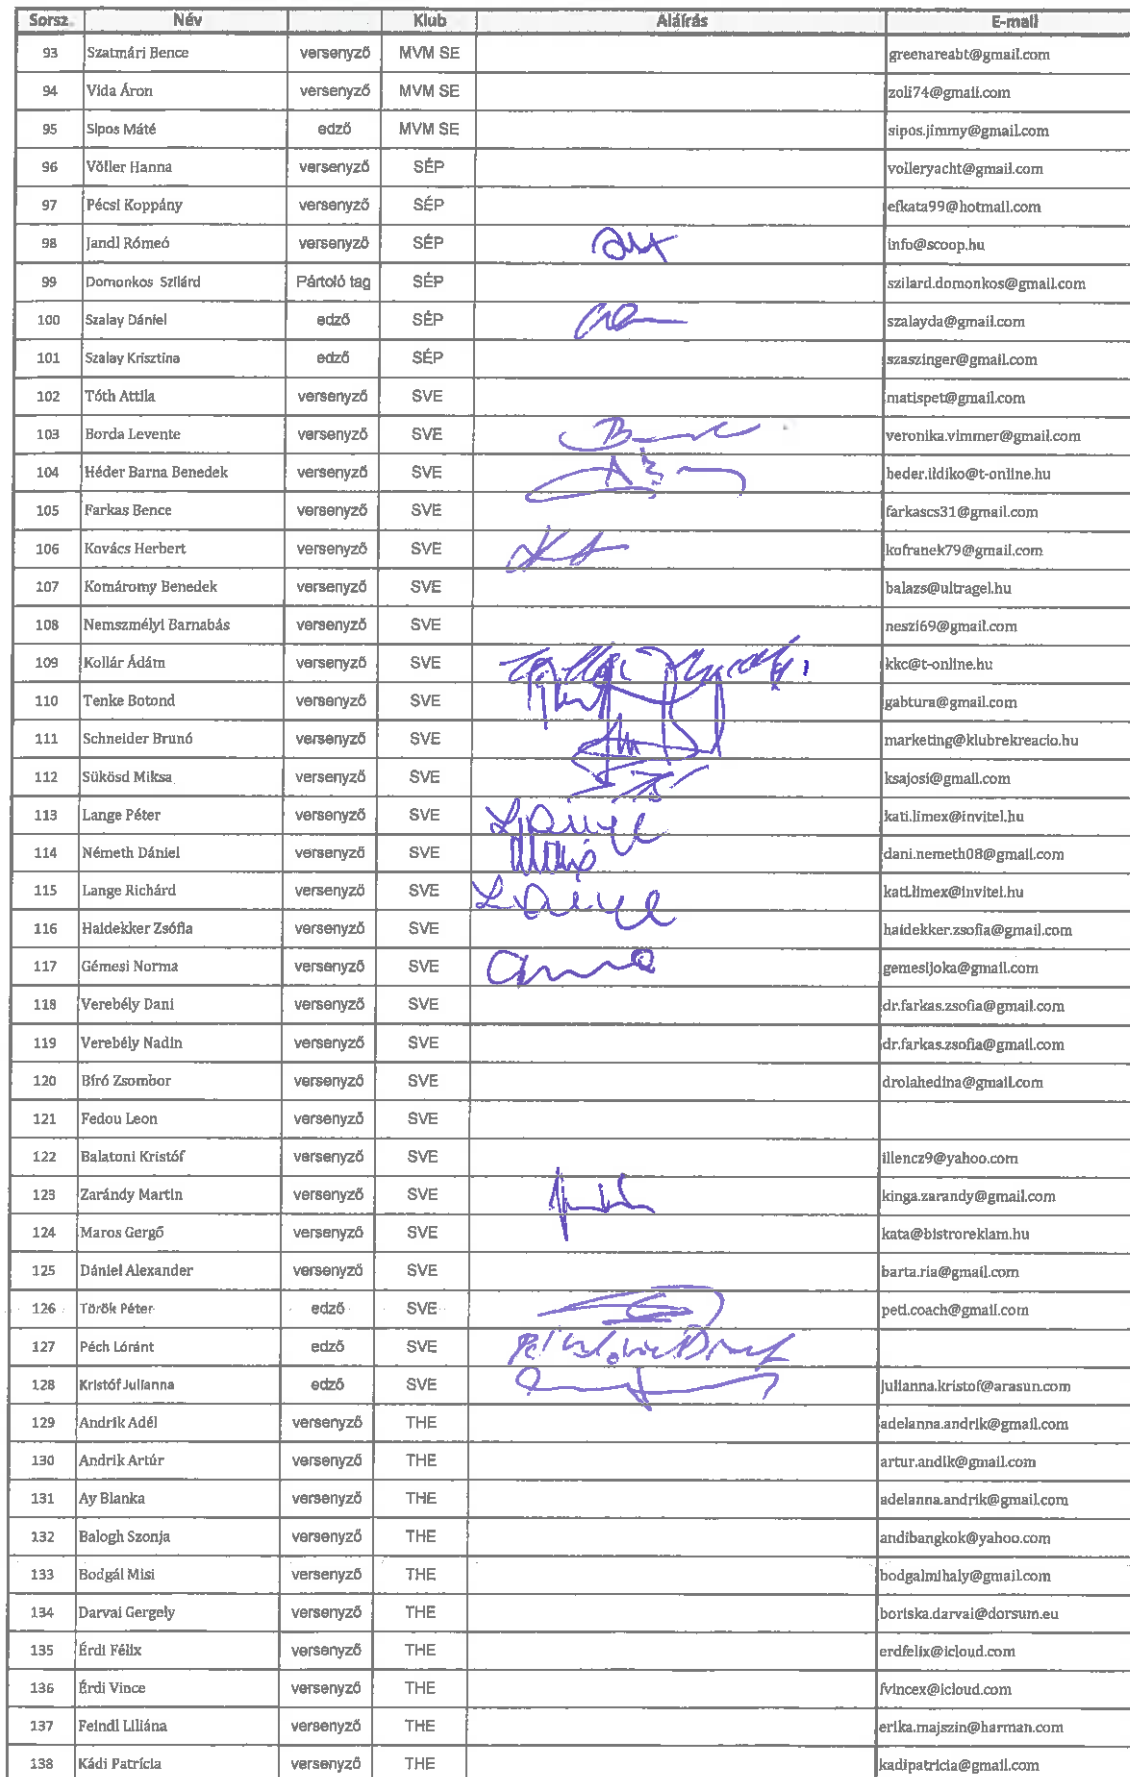 Sorsz. Név Klub Aláírás E-mail
93 Szatmári Bence versenyző MVM SE greenareabt@gmail.com
94 Vida Áron versenyző MVM SE zoli74@gmail.com
95 Sipos Máté edző MVM SE sipos.jimmy@gmail.com
96 Völler Hanna versenyző SÉP volleryacht@gmail.com
97 Pécsi Koppány versenyző SÉP efkata99@hotmail.com
98 Jandl Rómeó versenyző SÉP info@scoop.hu
99 Domonkos Szilárd Pártoló tag SÉP szilard.domonkos@gmail.com
100 Szalay Dániel edző SÉP szalayda@gmail.com
101 Szalay Krisztina edző SÉP szaszinger@gmail.com
102 Tóth Attila versenyző SVE matispet@gmail.com
103 Borda Levente versenyző SVE veronika.vimmer@gmail.com
104 Héder Barna Benedek versenyző SVE heder.ildiko@t-online.hu
105 Farkas Bence versenyző SVE farkascs31@gmail.com
106 Kovács Herbert versenyző SVE kofranek79@gmail.com
107 Komáromy Benedek versenyző SVE balazs@ultragel.hu
108 Nemszmélyi Barnabás versenyző SVE neszi69@gmail.com
109 Kollár Ádám versenyző SVE kkc@t-online.hu
110 Tenke Botond versenyző SVE gabtura@gmail.com
111 Schneider Brunó versenyző SVE marketing@klubrekreacio.hu
112 Sükösd Miksa versenyző SVE ksajosi@gmail.com
113 Lange Péter versenyző SVE Lange kati.limex@invitel.hu
114 Németh Dániel versenyző SVE dani.nemeth08@gmail.com
115 Lange Richárd versenyző SVE Lange kati.limex@invitel.hu
116 Haidekker Zsófia versenyző SVE haidekker.zsofia@gmail.com
117 Gémesi Norma versenyző SVE gemesijoka@gmail.com
118 Verebély Dani versenyző SVE dr.farkas.zsofia@gmail.com
119 Verebély Nadin versenyző SVE dr.farkas.zsofia@gmail.com
120 Bíró Zsombor versenyző SVE drolahedina@gmail.com
121 Fedou Leon versenyző SVE
122 Balatoni Kristóf versenyző SVE illencz9@yahoo.com
123 Zarándy Martin versenyző SVE kinga.zarandy@gmail.com
124 Maros Gergő versenyző SVE kata@bistroreklam.hu
125 Dániel Alexander versenyző SVE barta.ria@gmail.com
126 Török Péter edző SVE peti.coach@gmail.com
127 Péch Lóránt edző SVE
128 Kristóf Julianna edző SVE julianna.kristof@arasun.com
129 Andrik Adél versenyző THE adelanna.andrik@gmail.com
130 Andrik Artúr versenyző THE artur.andik@gmail.com
131 Ay Blanka versenyző THE adelanna.andrik@gmail.com
132 Balogh Szonja versenyző THE andibangkok@yahoo.com
133 Bodgál Misi versenyző THE bodgalmihaly@gmail.com
134 Darvai Gergely versenyző THE boriska.darvai@dorsum.eu
135 Érdi Félix versenyző THE erdfelix@icloud.com
136 Érdi Vince versenyző THE fvincex@icloud.com
137 Feindl Liliána versenyző THE erika.majszin@harman.com
138 Kádi Patrícia versenyző THE kadipatricia@gmail.com